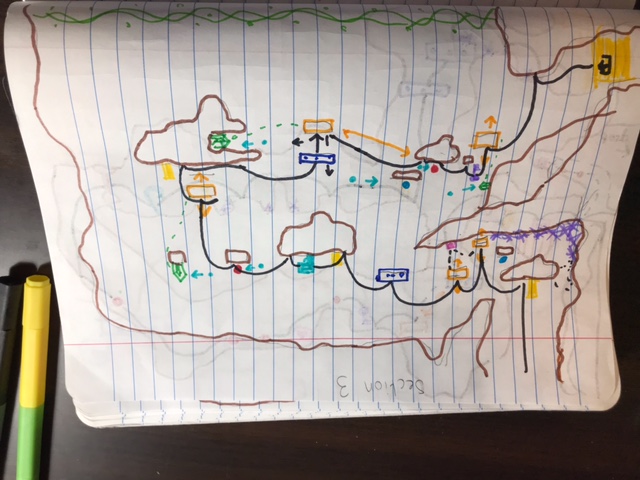 Section 3